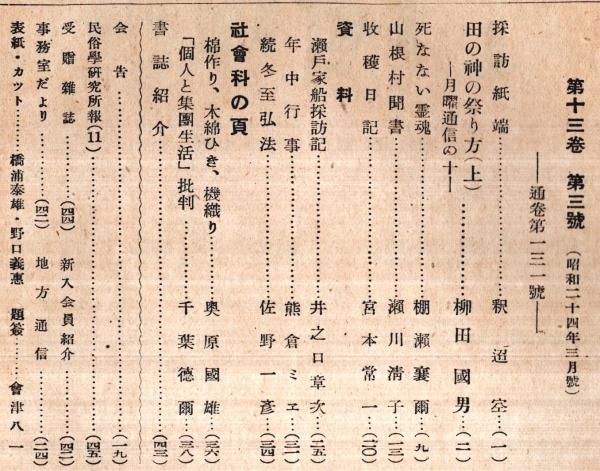 第十三卷 第三號 (昭和二十四年三月號)
――通卷第一三一號――
採訪紙端……………釈迢空…(一)
田の神の祭り方(上)……………柳田國男…(二)
―月曜通信の十―
死なない霊魂……………棚瀬襄爾…(九)
山根村聞書……………瀬川淸子…(一三)
收穫日記……………宮本常一…(二〇)
資料
瀬戸家船採訪記……………井之口章次…(二五)
年中行事……………熊倉ミヱ…(三一)
続冬至弘法……………佐野一彥…(三四)
社會科の頁
棉作り、木綿ひき、機織り……………奥原國雄…(三六)
「個人と集團生活」批判……………千葉德爾…(三八)
書誌紹介……………(四三)
会告……………(一九)
民俗學硏究所報(11)……………(四五)
受贈雜誌……………(四四) 新入会員紹介……………(四二)
事務室だより……………(四二) 地方通信……………(二四)
表紙・カツト………橋浦泰雄・野口義惠 題簽………會津八一